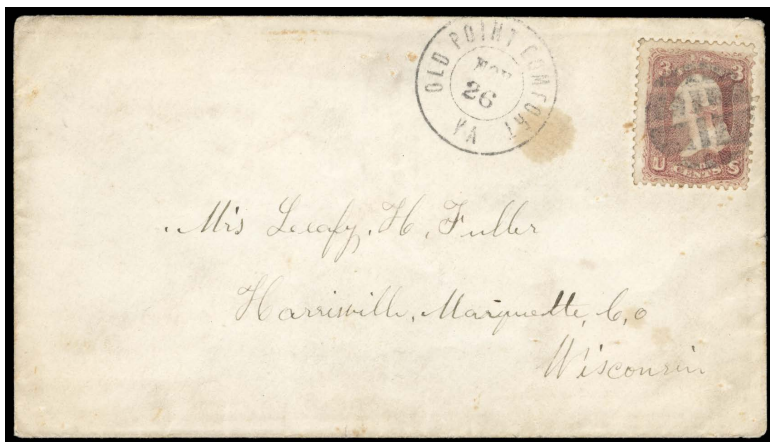 OLD POINT COMFORT
NOV
26
VA
3 3
U S
CENTS
Mrs Leafy. H. Fuller
Harrisville, Marquette, Co
Wisconsin